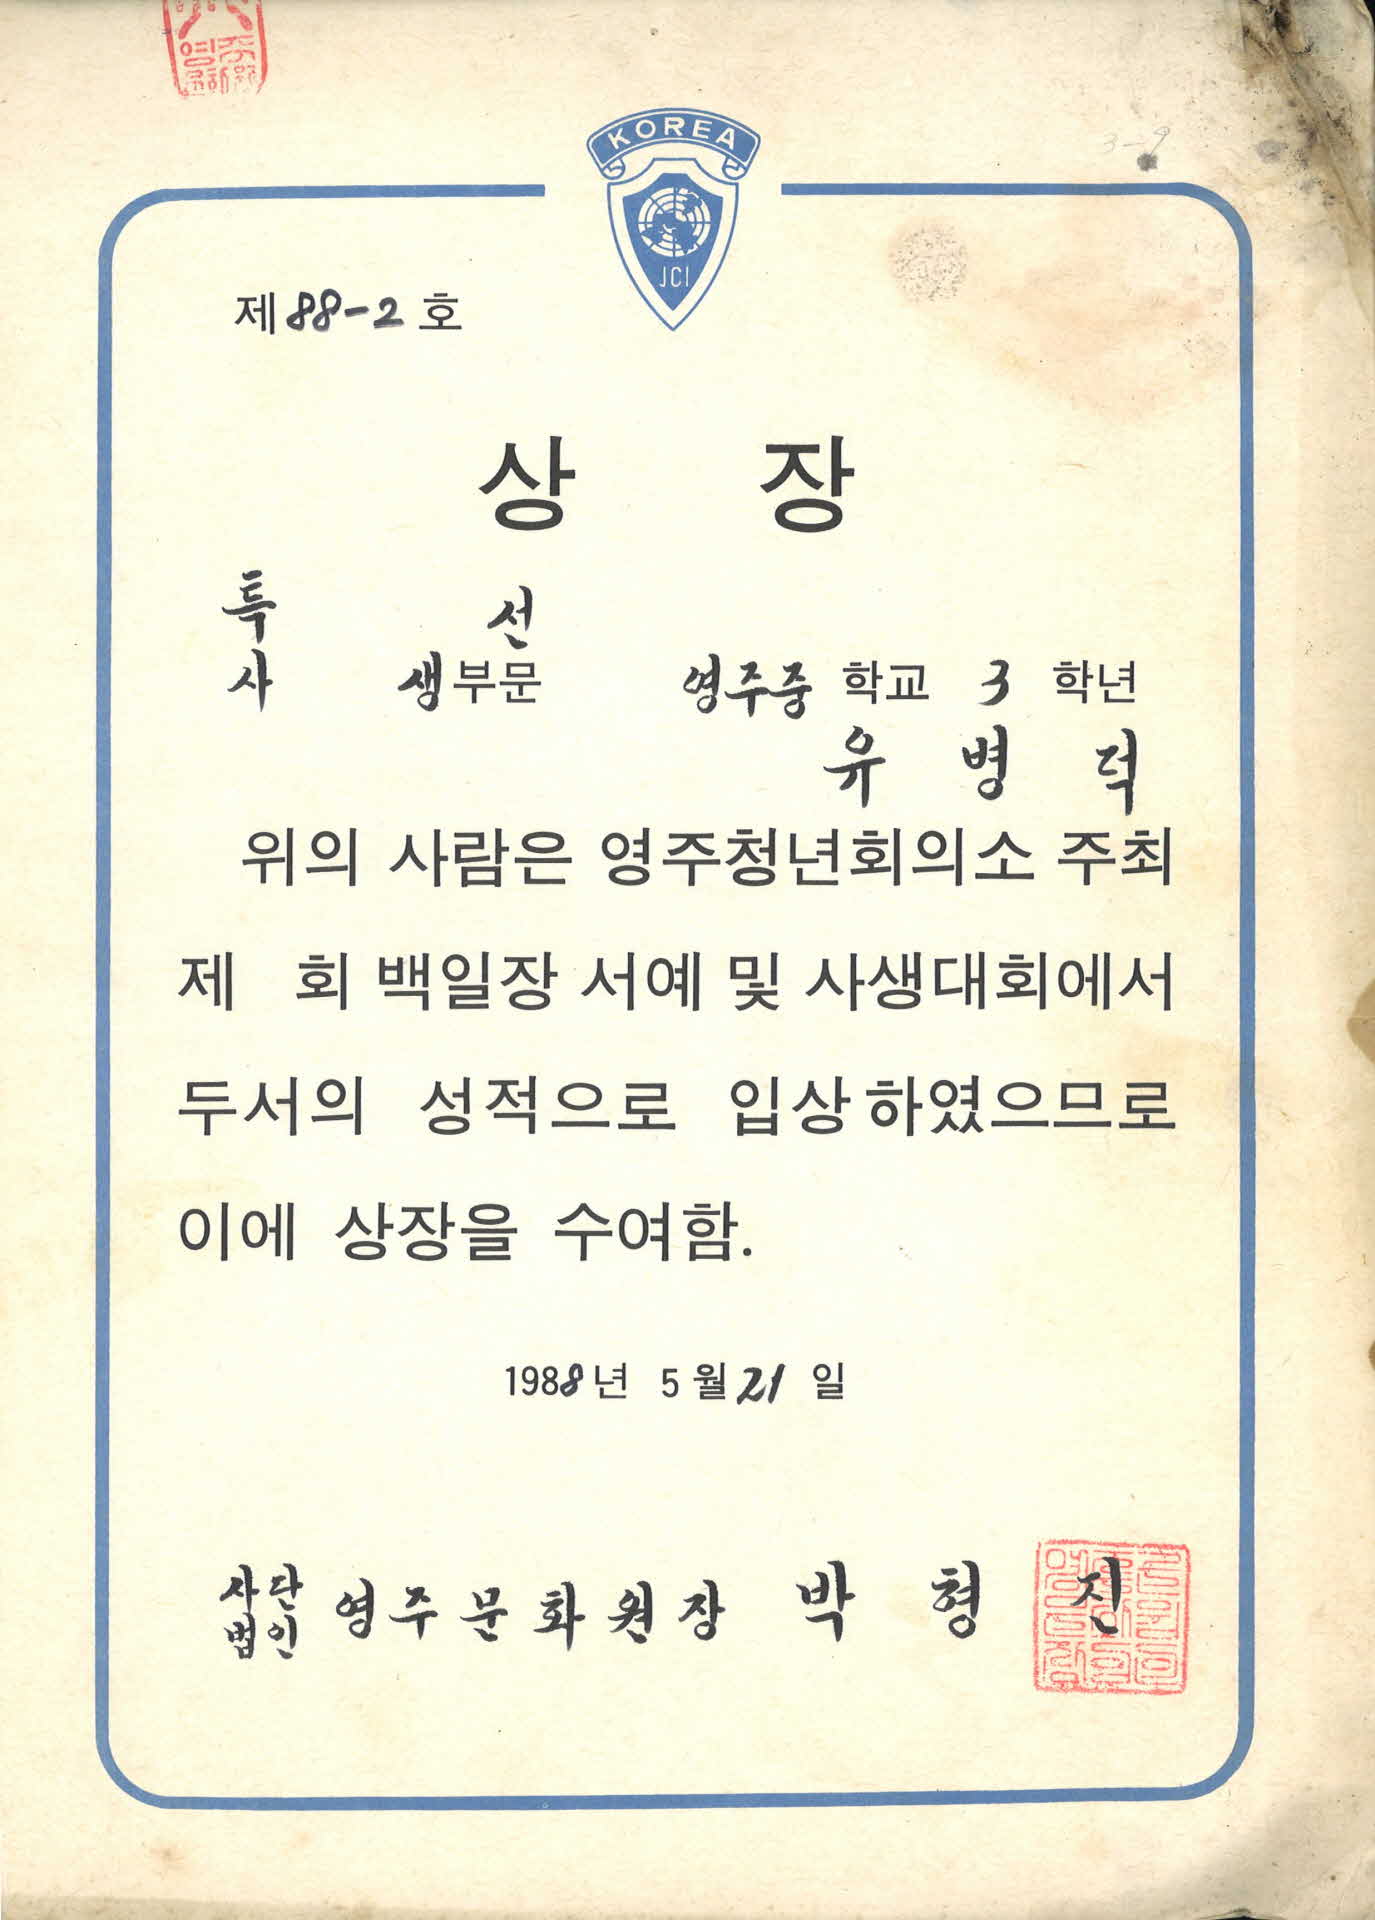 KOREA
JCI
3-9
제 88-2 호
상 장
특 선
사 생부문 영주중 학교 3 학년
유 병 덕
위의 사람은 영주청년회의소 주최
제 회 백일장 서예 및 사생대회에서
두서의 성적으로 입상하였으므로
이에 상장을 수여함.
1988년 5월 21 일
사단
법인 영주문화원장 박 형 진